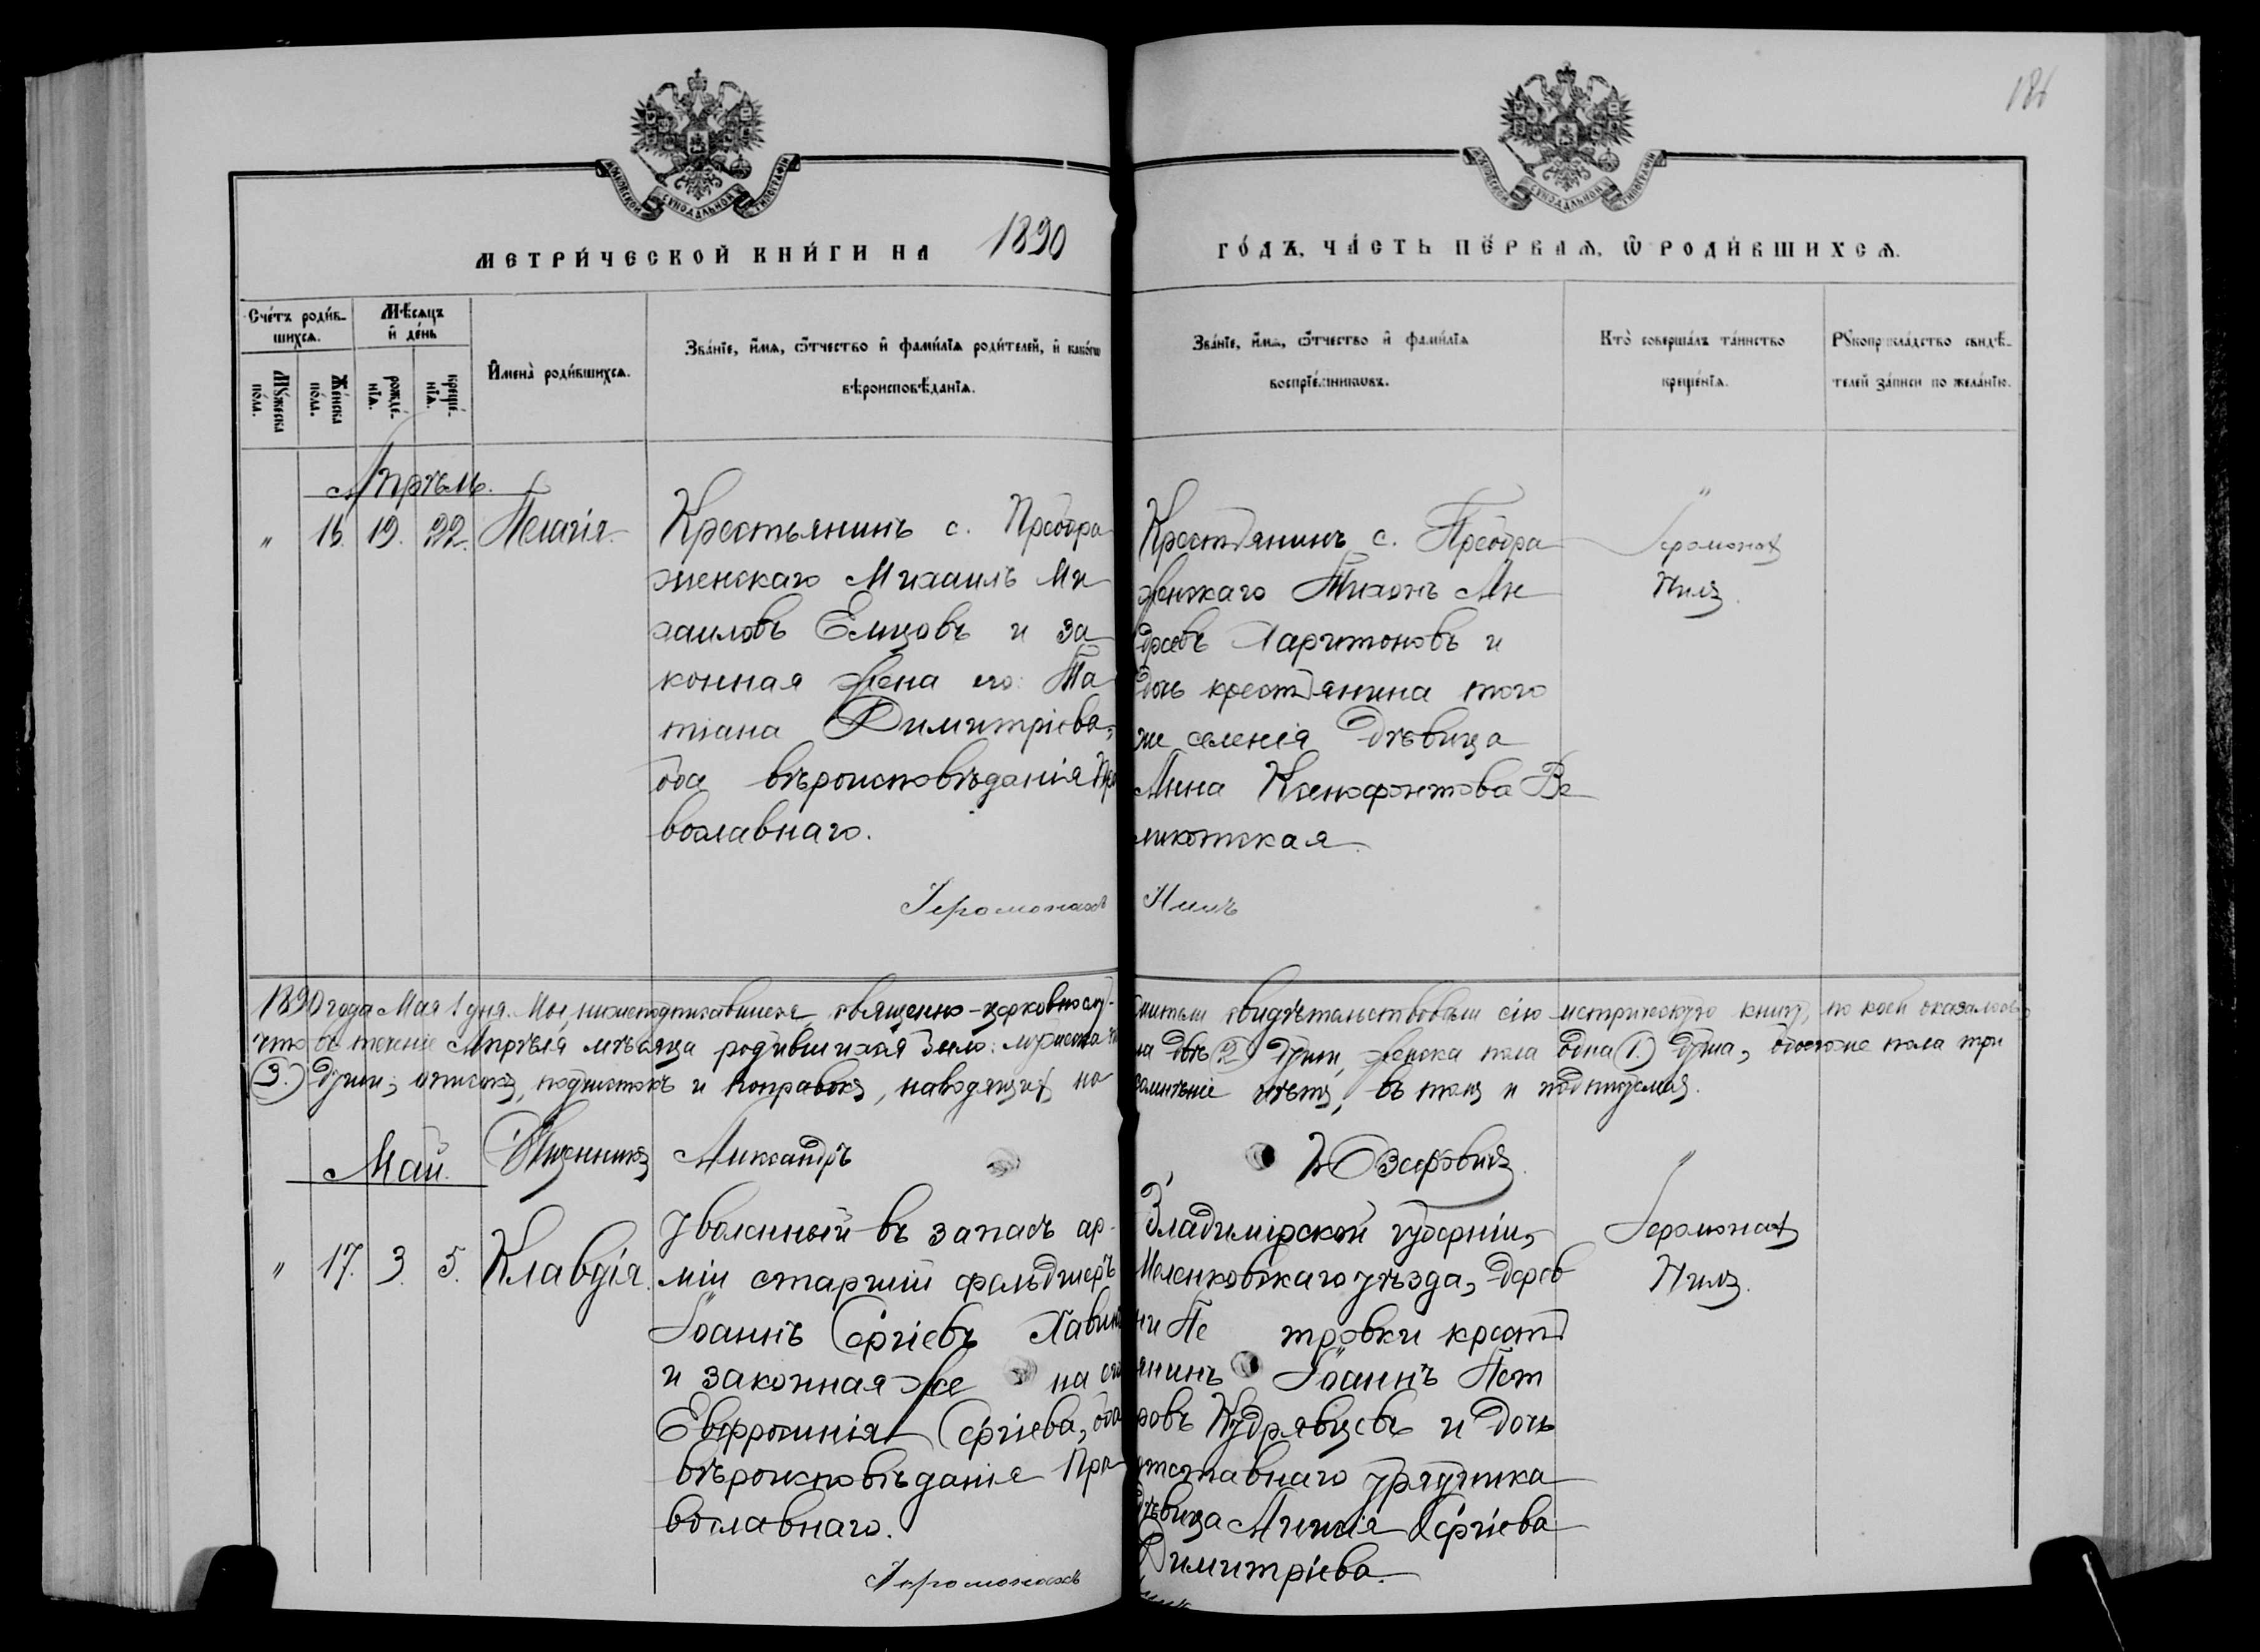 186
МОСКОВСКОЙ СѴНОДАЛЬНОЙ ТИПОГРАФІИ
МОСКОВСКОЙ СѴНОДАЛЬНОЙ ТИПОГРАФІИ
МЕТРИ́ЧЕСКОЙ КНИ́ГИ НА 1890
ГО́ДЪ, ЧА́СТЬ ПЕ́РВАѦ, Ѡ҆ РОДИ́ВШИХСѦ.
Сче́тъ роди́в-
шихсѧ.
Мѣ́сяцъ
и҆ де́нь
Мꙋ́жеска
по́ла.
Же́нска
по́ла.
рожде́-
нїѧ.
креще́-
нїѧ.
И҆мена̀ роди́вшихсѧ.
Зва́нїе, и҆́мѧ, ѻ҆́тчество и҆ фами́лїѧ роди́телей, и҆ како́гѡ
вѣроисповѣ́данїѧ.
Зва́нїе, и҆́мѧ, ѻ҆́тчество и҆ фами́лїѧ
воспрїе́мникѡвъ.
Кто̀ соверша́лъ та́инство
креще́нїѧ.
Рꙋкоприкла́дство свидѣ́-
телей за́писи по жела́нїю.
Апрѣль.
" 16. 19. 22. Пелагія.
Крестьянинъ с. Преобра
женскаго Михаилъ Ми
хаиловъ Емцовъ и за
конная жена его: Та
тіана Димитріева,
оба вѣроисповѣданія Пра
вославнаго.
Іеромонахъ
Крестьянинъ с. Преобра
женскаго Тихонъ Ан
дреевъ Харитоновъ и
дочь крестьянина того
же селенія дѣвица
Анна Ксенофонтова Ве
ликотская.
Нилъ
"
Іеромонахъ
Нилъ.
1890 года Мая 1 дня. Мы, нижеподписавшіеся священно-церковнослу-
жители свидѣтельствовали сію метрическую книгу, по коей оказалось,
что въ теченіе Апрѣля мѣсяца родившихся было: мужеска по
ла двѣ (2) души, женска пола одна (1.) душа, обоего пола три
(3.) души; описокъ, подчистокъ и поправокъ, наводящихъ на
сомнѣніе нѣтъ, въ томъ и подписуемся.
Священникъ Александръ Юзефовичъ.
Май.
" 17. 3. 5. Клавдія.
Уволенный въ запасъ ар-
міи старшій фельдшеръ
Іоаннъ Сергіевъ
и законная жена его
Евфросинія Сергіева, оба
вѣроисповѣданія Пра
вославнаго.
Іеромонахъ
Владимірской губерніи,
Меленковскаго уѣзда, дерев
ни Петровки кресть
янинъ Іоаннъ Пет
ровъ Кудрявцевъ и дочь
отставнаго урядника
дѣвица Сергіева
Димитріева.
"
Іеромонахъ
Нилъ.